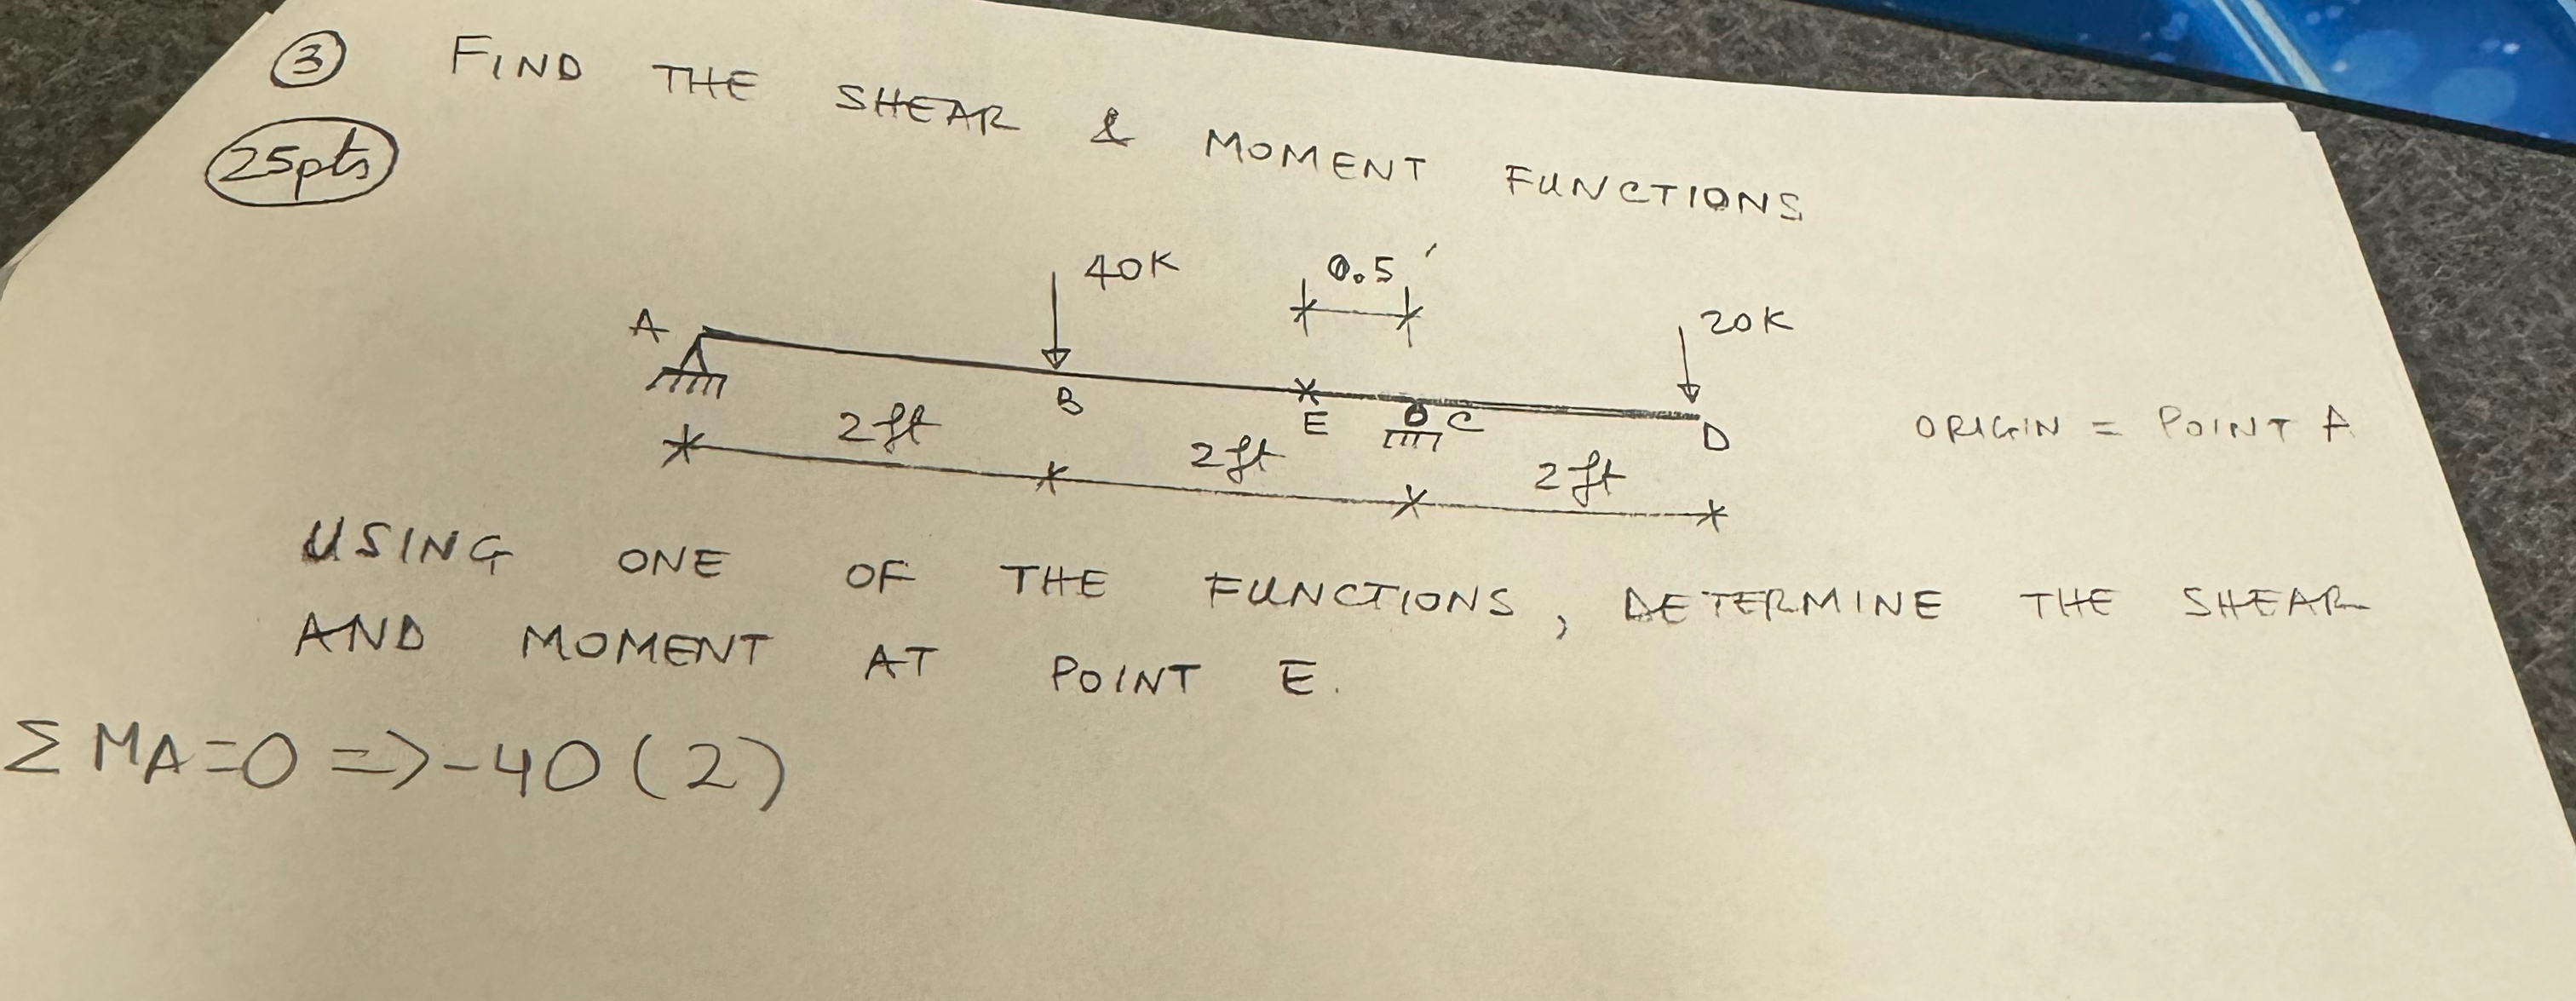 3 FIND THE SHEAR & MOMENT FUNCTIONS
25pts
40K
0.5'
20K
A
B
E
C
D
2ft
2ft
2ft
ORIGIN = POINT A
USING ONE OF THE FUNCTIONS, DETERMINE THE SHEAR
AND MOMENT AT POINT E.
Σ MA=0 => -40(2)